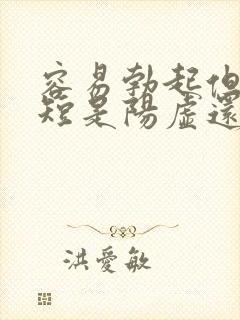 容易勃起但
短是陽虛還
洪愛敏